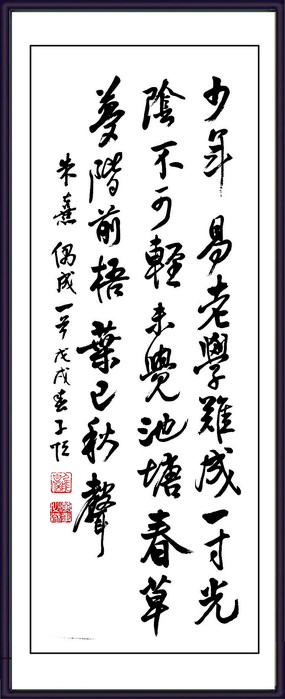 少年易老學難成一寸光
陰不可輕未覺池塘春草
夢階前梧葉已秋聲
朱熹偶成一首戊戌春子恒